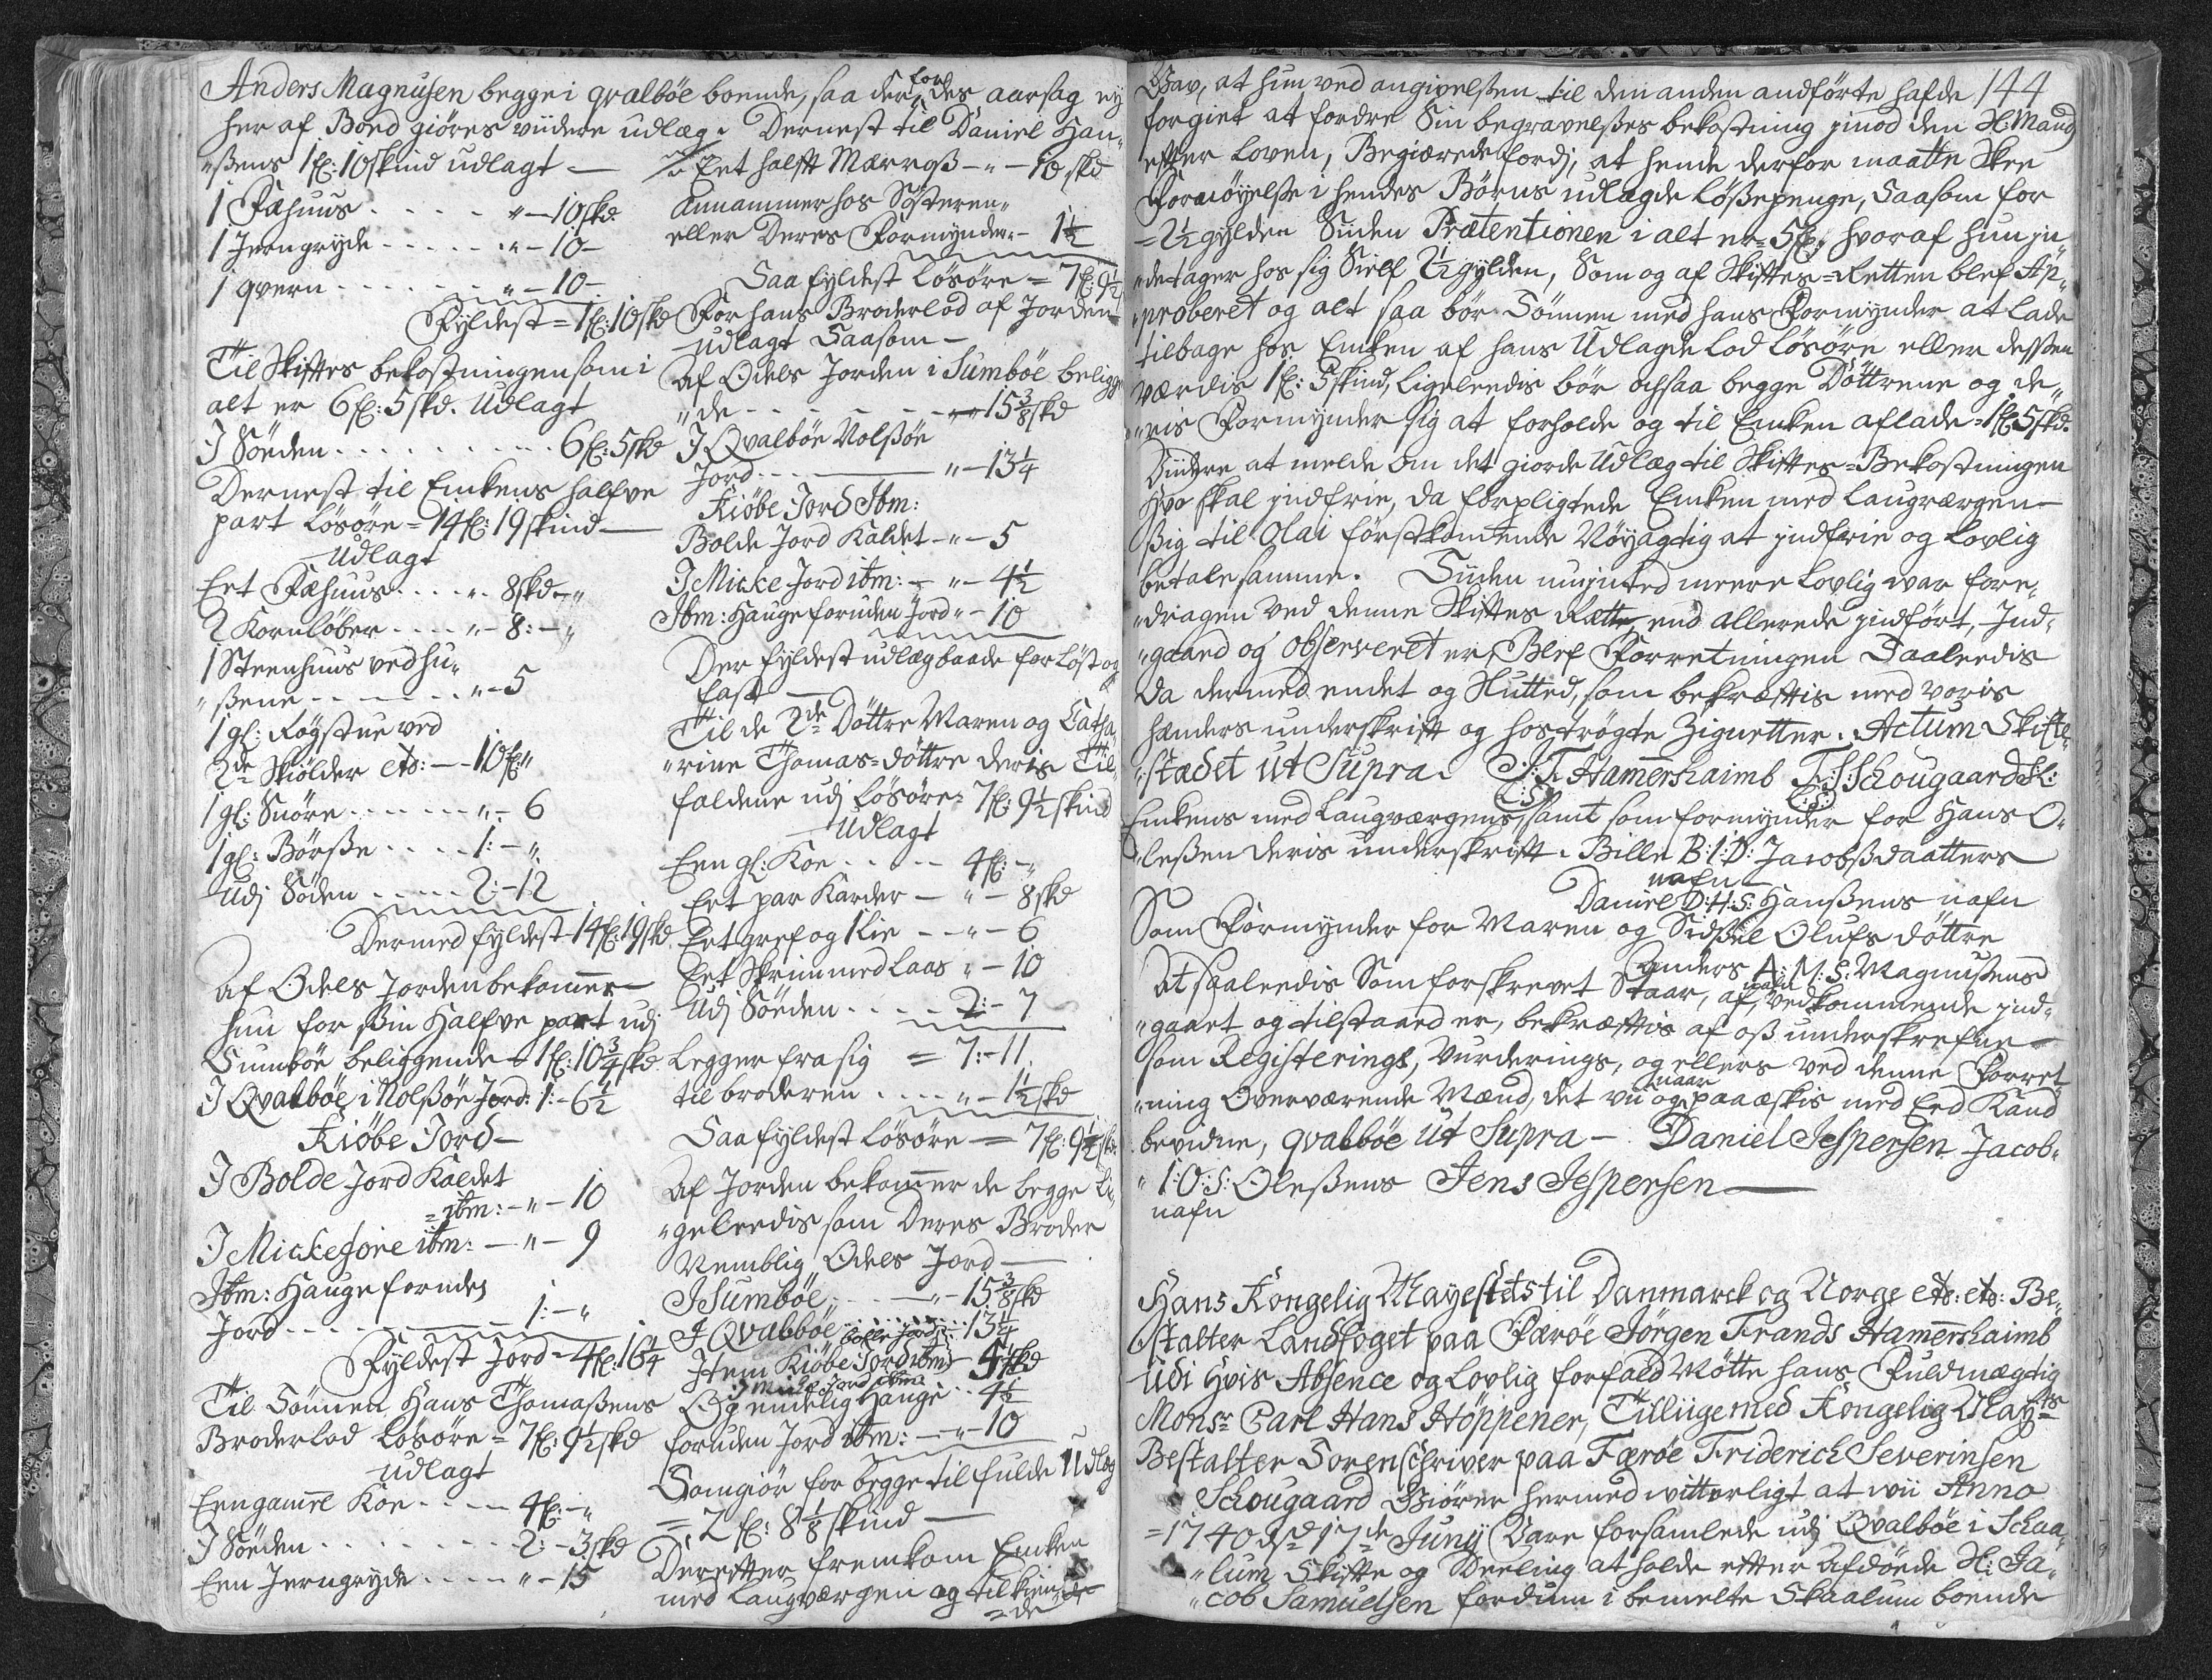 Anders Magnusen begge i qvalböe boende, saa der for des aarsag ey
her af Boed giöres viidere udlæg. Dernest til Daniel Han„
„ßens 1fl: 10skind udlagt —
1 Fæhuus . . . . . " — 10skd
1 Jerngryde . . . . . " — 10 —
1 qvern . . . . . " — 10 —
Fyldest = 1fl: 10skd
Til Skiftes bekostningen som i
alt er 6fl: 5skd. Udlagt
J Söeden . . . . . 6fl: 5skd
Dernest til Enkens halfve
part lösöre = 14fl: 19skind —
Udlagt
Eet Fæhuus . . . . " 8skd "
2 Kornlöber . . . . " — 8: — "
1 Steenhuus ved hu„
„ßene . . . . . " — 5
1 gl: Røgstue ved
2de Skiölder etc: — 10fl "
1 gl: Snöre . . . . . " — 6
1 gl: Börße . . . . 1: — "
Udj Söden . . . . 2: — 12
Dermed fyldest 14fl: 19skd.
Af Odels Jorden bekommer
hun for ßin Halfve part udj
Sumböe beliggende — 1fl: 10¾skd
J Qvalböe i Nolßöe Jord: 1: — 6½
Kiöbe Jord —
J Bolde Jord Kaldet
= ibm: — " — 10
J Mickejore ibm: — " — 9
Ibm: Hauge foruden
Jord . . . . . 1: — "
Fyldest Jord = 4fl: 16¼
Til Sönnen Hans Thomaßens
Broderlod Lösöre = 7fl: 9½skd
udlagt
Een gamel Koe . . . . 4fl: — "
J Söeden . . . . . 2: — 3skd
Een Jerngryde . . . . " — 15
Eet halft Mærroß — " — 10skd
Annammer hos Søsteren„
eller Deres Formynder — 1½
Saa fyldest lösöre = 7fl: 9½
For hans Broderlod af Jorden
udlagt Saasom —
Af Odels Jorden i Sumböe beligge
„de — . . . . . " 15⅜skd
J Qvalböe Nolßöe
Jord . . . . . " — 13¼
Kiöbe Jord Ibm:
Bolde Jord Kaldet — " — 5
J Micke Jord ibm: — " — 4½
Ibm: Hauge foruden Jord " — 10
Der fyldest udlæg baade for Löst og
fast —
Til de 2de Döttre Maren og Catha„
„rine Thomas=döttre deris Til„
faldene udj lösöre = 7fl: 9½skind
Udlagt
Een gl: Koe . . . . 4fl: — "
Eet par Karder — " — 8skd
Eet gref og 1 Lie — " — 6
Eet Skrin med Laas " — 10
Udj Söeden . . . . 2: — 7
Legger fra sig = 7: — 11.
til broderen . . . . " — 1½skd
Saa fyldest lösöre — = 7fl: 9½sk:
Af Jorden bekommer de begge Li„
„geleedis som Deres Broder
Nemblig Odels Jord —
J Sumböe . . . — " — 15⅜skd
J Qvalböe . . . . . 13¼
Item Kiöbe Jord ibm bolle Jord . . 5skd
J Micke Jord ibm
Og endelig Hauge . . 4½
foruden Jord ibm: — " — 10
Som giör for begge til fulde Udlæg
= 2fl: 8⅛skind —
Derefter fremkom Enken
med Laugværgen og tilkiende
=de
144
Gav, at hun ved angivelßen til den anden andförte hafde
forgiet at fordre Sin begravelßes bekostning jmod den Sl: Mand
efter Loven, Begiærede fordj, at hende derfor maatte Skee
Fornöyelße i hendes Börns udlagde Lößepenge, Saasom for
= 2½ gylden Siiden Prætentionen i alt er = 5fl, hvoraf hun jn
„detager hos sig Sielf 2½ gylden, Som og af Skiftes=Retten blef Ap„
„proberet og alt saa bör Sönnen med hans Formynder at Lade
tilbage hos Enken af hans Udlagde Lod lösöre eller desßen
værdie 1fl: 5skind, Ligeleedis bör ochsaa begge Döttrene og de„
„ris Formynder sig at forholde og til Enken aflade = 1fl: 5skd.
Viidere at melde om det giorde Udlæg til Skiftes=Bekostningen
Hvo skal jndfrie, da forpligtede Enken med Laugværgen —
ßig til Olai förstkomende Nöyagtig at jndfrie og lovlig
betale samme. Siiden nu jntted meere Lovlig var fore„
„dragen ved denne Skiftes Rette, end allerede jndfört, Ind„
„gaaed og observeret er, Blef Forretningen Saaleedis
da dermed endet og Sluttet, som bekræftis med voris
hænders underskrift og hoströgte Zignetter. Actum Skifte„
„stædet ut Supra. J: F: Hamershaimb F: S: Schougaard
L: S: L: S:
Enkens med Laugværgens, samt som formynder for Hans O„
„leßen deris underskrift. Bille B: I: D: Jacobßdaatters
nafn —
Daniel D: H: S: Hanßens nafn
Som Formynder for Maren og Sidßel Olufs döttre
Anders A: M: S: Magnußens
nafn
At saaleedis Som forskrevet Staar, af vedkommende jnd„
„gaaet og tilstaaed er, bekræftis af oß underskrefne —
som Registerings, Vurderings, og ellers ved denne Forret
„ning Overværende Mænd, det vii og naar paaæskis med Eed Kand
bevidne, qvalböe ut Supra — Daniel Jespersen Jacob„
„ I: O: S: Oleßens Jens Jespersen —
nafn
Hans Kongelig Mayestets til Danmarck og Norge etc: etc: Be„
stalter Landfoget paa Færöe Jörgen Frands Hamershaimb
Udi Hvis Absence og Lovlig forfald Mötte hans Fuldmægtig
Monsr Carl Hans Höppener, Tilliige med Kongelig Mayts
Bestalter Sorenschriver paa Færöe Friderich Severinsen
Schougaard Giörer hermed vitterligt at vii Anno
= 1740 d. 17de Junij Vare forsamlede udj Qvalböe i Schaa„
„lum Skifte og Deeling at holde efter Afdöede Sl: Ja„
„cob Samuelsen fordum i bemelte Skaalum boende